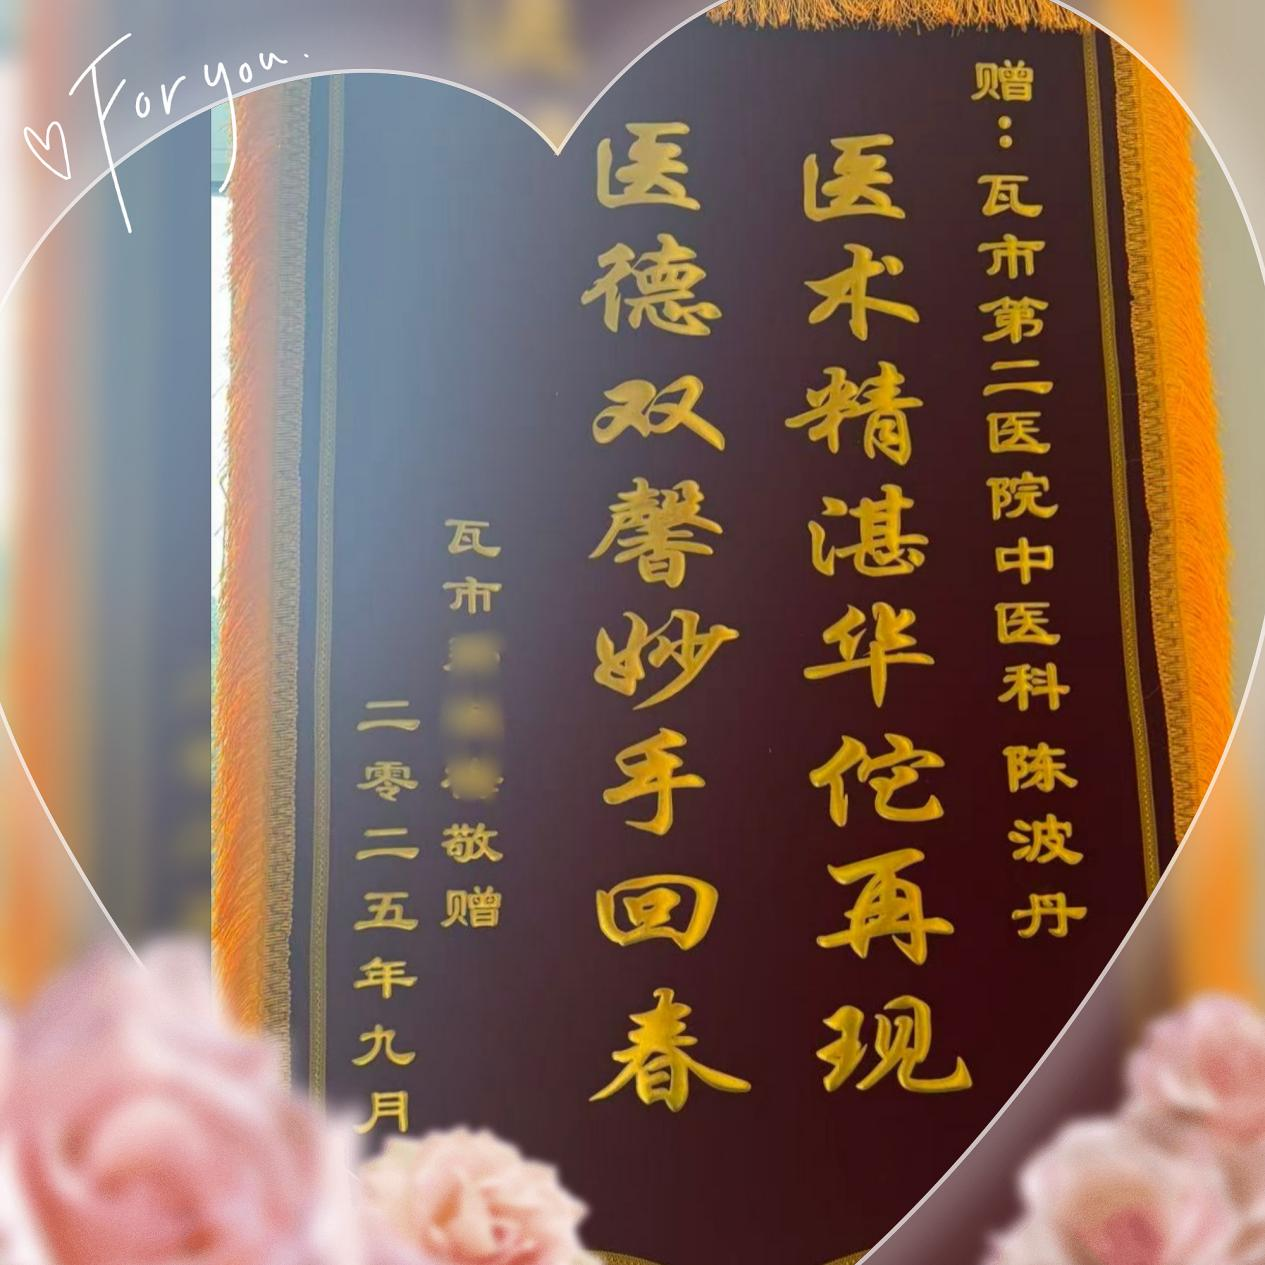 For you.
赠：瓦市第二医院中医科 陈波丹
医术精湛华佗再现
医德双馨妙手回春
瓦市 敬赠
二零二五年九月